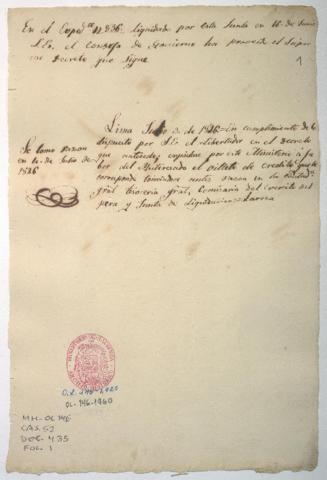 En el Exped.te N. 336. liquidado por esta Junta en 16. de Junio
el Consejo de Gobierno ha proveido el Supre
mo Decreto que sigue
1
Lima Julio 3. de 1826=En cumplimiento de lo
dispuesto por S.E. el Libertador en el Decreto
que antecede, expidase por este Ministerio á fa
bor del Interezado el billete de credito que le
corresponde tomandose antes razon en la
gral, Tesoreria gral, Comisaria del Exercito del
peru y Junta de Liquidacion=Larrea
Se tomó razon
en 4. de Julio de
1826
O.L. 146-1260
MH-OL146
CAJ. 52
DOC. 435
FOL. 1